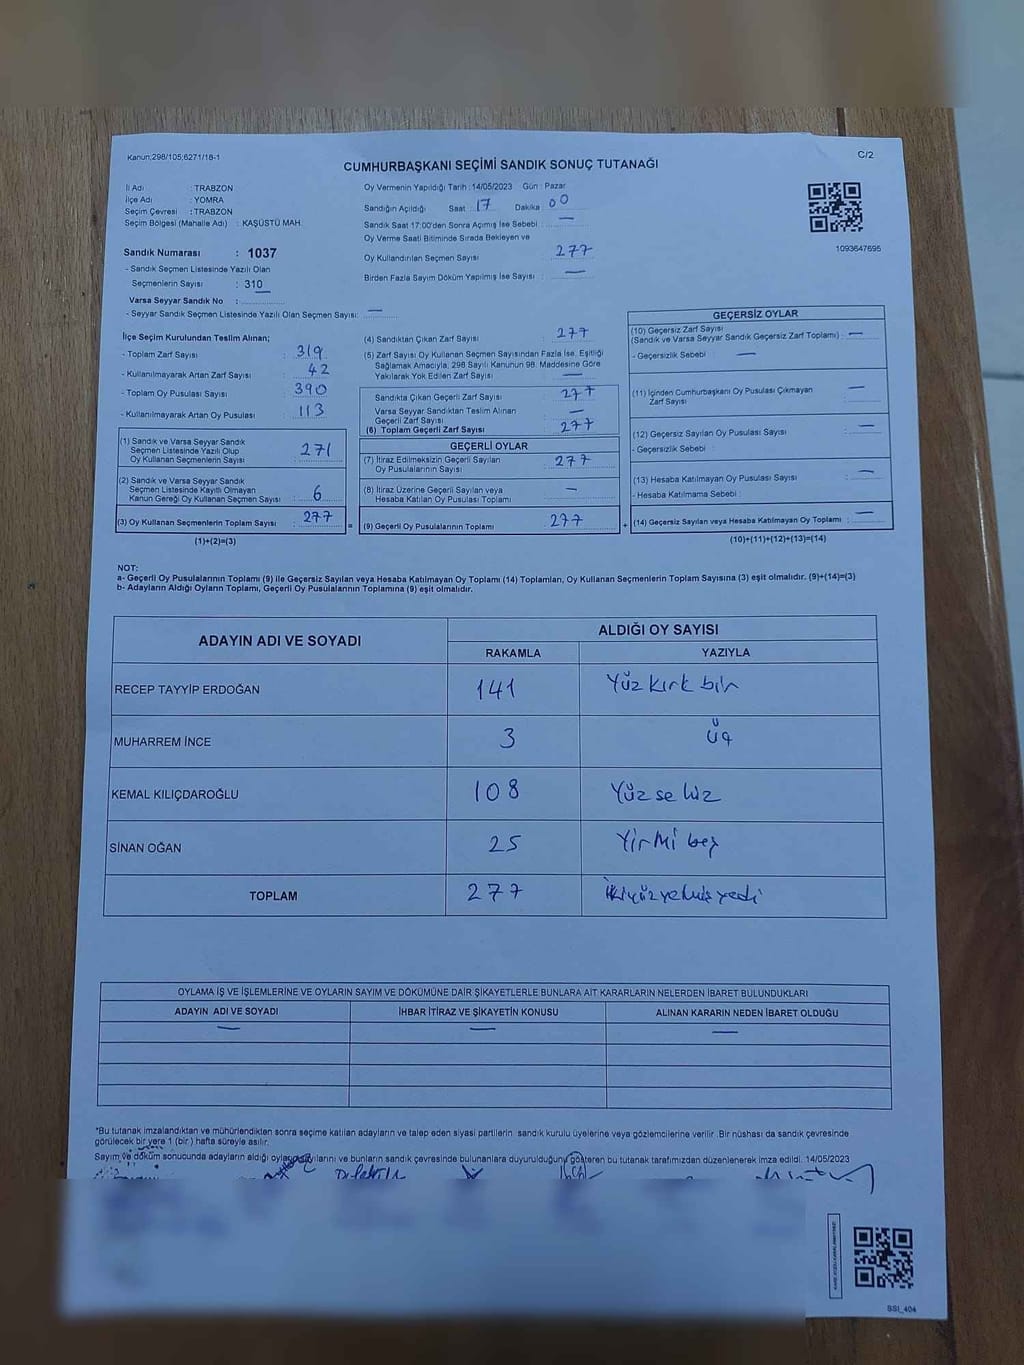 Kanun;298/105;6271/18-1
C/2
CUMHURBAŞKANI SEÇİMİ SANDIK SONUÇ TUTANAĞI
İl Adı : TRABZON
İlçe Adı : YOMRA
Seçim Çevresi : TRABZON
Seçim Bölgesi (Mahalle Adı) : KAŞÜSTÜ MAH.
Oy Vermenin Yapıldığı Tarih :14/05/2023 Gün : Pazar
Sandığın Açıldığı Saat : 17 Dakika : 00
Sandık Saat 17:00'den Sonra Açımış İse Sebebi : —
Oy Verme Saati Bitiminde Sırada Bekleyen ve
Oy Kullandırılan Seçmen Sayısı : 277
Birden Fazla Sayım Döküm Yapılmış İse Sayısı : —
1093647695
Sandık Numarası : 1037
- Sandık Seçmen Listesinde Yazılı Olan
Seçmenlerin Sayısı : 310
Varsa Seyyar Sandık No :
- Seyyar Sandık Seçmen Listesinde Yazılı Olan Seçmen Sayısı: —
İlçe Seçim Kurulundan Teslim Alınan;
- Toplam Zarf Sayısı : 319
- Kullanılmayarak Artan Zarf Sayısı : 42
- Toplam Oy Pusulası Sayısı : 390
- Kullanılmayarak Artan Oy Pusulası : 113
(1) Sandık ve Varsa Seyyar Sandık
Seçmen Listesinde Yazılı Olup
Oy Kullanan Seçmenlerin Sayısı : 271
(2) Sandık ve Varsa Seyyar Sandık
Seçmen Listesinde Kayıtlı Olmayan
Kanun Gereği Oy Kullanan Seçmen Sayısı : 6
(3) Oy Kullanan Seçmenlerin Toplam Sayısı : 277
(1)+(2)=(3)
(4) Sandıktan Çıkan Zarf Sayısı : 277
(5) Zarf Sayısı Oy Kullanan Seçmen Sayısından Fazla İse, Eşitliği
Sağlamak Amacıyla, 298 Sayılı Kanunun 98. Maddesine Göre
Yakılarak Yok Edilen Zarf Sayısı : —
Sandıkta Çıkan Geçerli Zarf Sayısı : 277
Varsa Seyyar Sandıktan Teslim Alınan
Geçerli Zarf Sayısı : —
(6) Toplam Geçerli Zarf Sayısı : 277
GEÇERLİ OYLAR
(7) İtiraz Edilmeksizin Geçerli Sayılan
Oy Pusulalarının Sayısı : 277
(8) İtiraz Üzerine Geçerli Sayılan veya
Hesaba Katılan Oy Pusulası Toplamı : —
= (9) Geçerli Oy Pusulalarının Toplamı : 277
GEÇERSİZ OYLAR
(10) Geçersiz Zarf Sayısı
(Sandık ve Varsa Seyyar Sandık Geçersiz Zarf Toplamı) : —
- Geçersizlik Sebebi : —
(11) İçinden Cumhurbaşkanı Oy Pusulası Çıkmayan
Zarf Sayısı : —
(12) Geçersiz Sayılan Oy Pusulası Sayısı : —
- Geçersizlik Sebebi :
(13) Hesaba Katılmayan Oy Pusulası Sayısı : —
- Hesaba Katılmama Sebebi :
+ (14) Geçersiz Sayılan veya Hesaba Katılmayan Oy Toplamı : —
(10)+(11)+(12)+(13)=(14)
NOT:
a- Geçerli Oy Pusulalarının Toplamı (9) ile Geçersiz Sayılan veya Hesaba Katılmayan Oy Toplamı (14) Toplamları, Oy Kullanan Seçmenlerin Toplam Sayısına (3) eşit olmalıdır. (9)+(14)=(3)
b- Adayların Aldığı Oyların Toplamı, Geçerli Oy Pusulalarının Toplamına (9) eşit olmalıdır.
ADAYIN ADI VE SOYADI ALDIĞI OY SAYISI
RAKAMLA YAZIYLA
RECEP TAYYİP ERDOĞAN 141 Yüz kırk bir
MUHARREM İNCE 3 üç
KEMAL KILIÇDAROĞLU 108 Yüz sekiz
SİNAN OĞAN 25 Yirmi beş
TOPLAM 277 ikiyüzyetmişyedi
OYLAMA İŞ VE İŞLEMLERİNE VE OYLARIN SAYIM VE DÖKÜMÜNE DAİR ŞİKAYETLERLE BUNLARA AİT KARARLARIN NELERDEN İBARET BULUNDUKLARI
ADAYIN ADI VE SOYADI İHBAR İTİRAZ VE ŞİKAYETİN KONUSU ALINAN KARARIN NEDEN İBARET OLDUĞU
— — —
*Bu tutanak imzalandıktan ve mühürlendikten sonra seçime katılan adayların ve talep eden siyasi partilerin sandık kurulu üyelerine veya gözlemcilerine verilir .Bir nüshası da sandık çevresinde
görülecek bir yere 1 (bir ) hafta süreyle asılır.
Sayım ve döküm sonucunda adayların aldığı oyların sayılarını ve bunların sandık çevresinde bulunanlara duyurulduğunu gösteren bu tutanak tarafımızdan düzenlenerek imza edildi. 14/05/2023
SSI_404